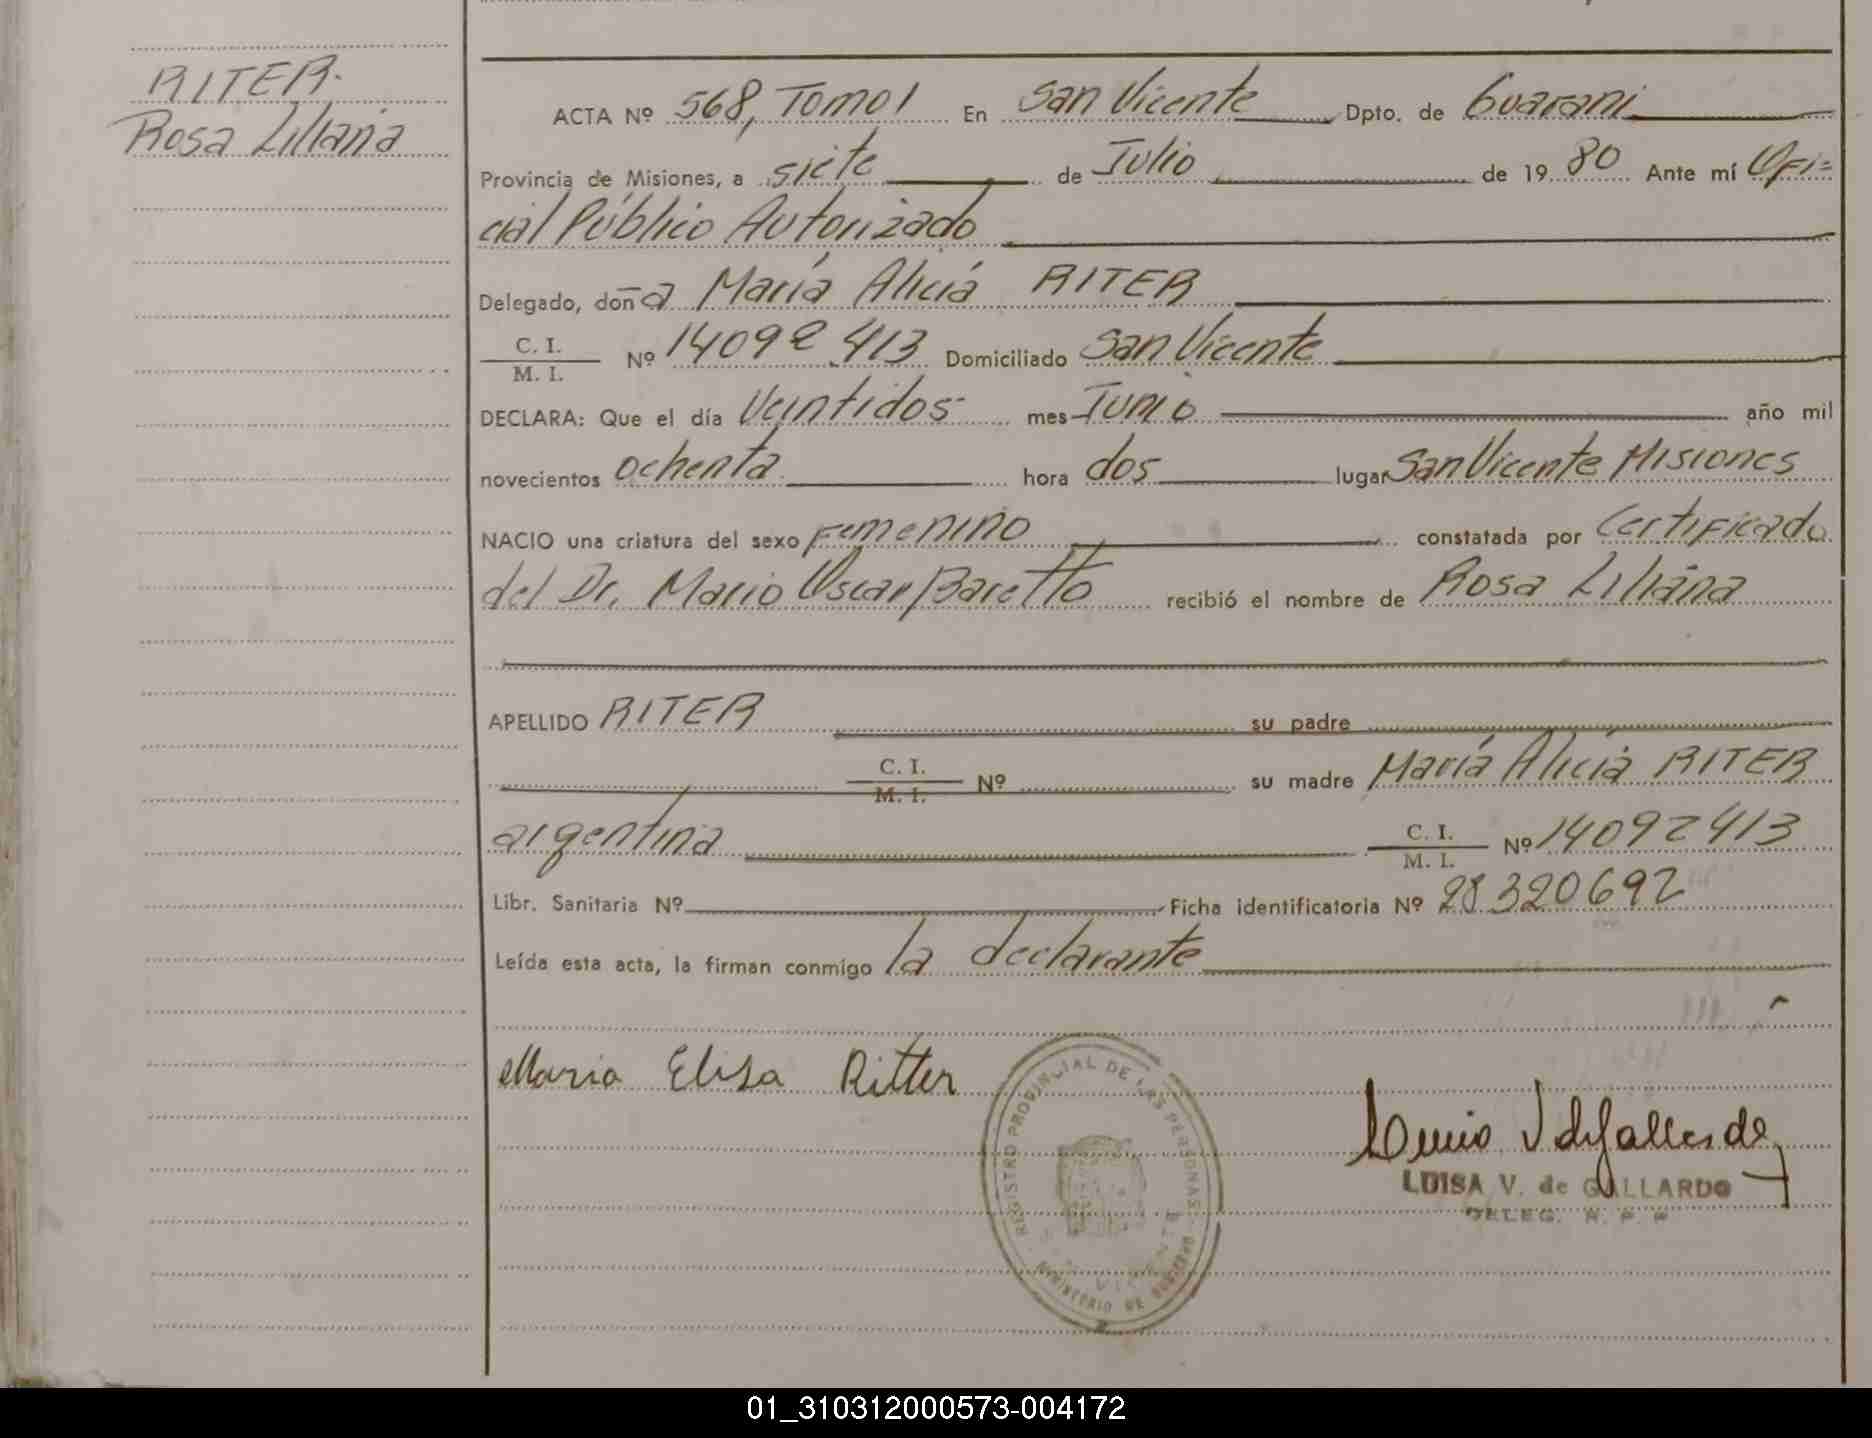 RITER.
Rosa Liliana
ACTA Nº 568, Tomo I En San Vicente Dpto. de Guarani
Provincia de Misiones, a siete de Julio de 19 80 Ante mí Ofi=
cial Público Autorizado
Delegado, doña María Alicia RITER
C. I. / M. I. Nº 14092.413 Domiciliado San Vicente
DECLARA: Que el día Veintidos mes Junio año mil
novecientos ochenta hora dos lugar San Vicente Misiones
NACIO una criatura del sexo Femenino constatada por Certificado
del Dr. Mario Oscar Baretto recibió el nombre de Rosa Liliana
APELLIDO RITER su padre
C. I. / M. I. Nº su madre María Alicia RITER
argentina C. I. / M. I. Nº 14092413
Libr. Sanitaria Nº Ficha identificatoria Nº 28.320692
Leída esta acta, la firman conmigo la declarante
Maria Elisa Ritter
REGISTRO PROVINCIAL DE LAS PERSONAS
MINISTERIO DE GOBIERNO
LUISA V. de GALLARDO
DELEG. R. P. P.
01_310312000573-004172